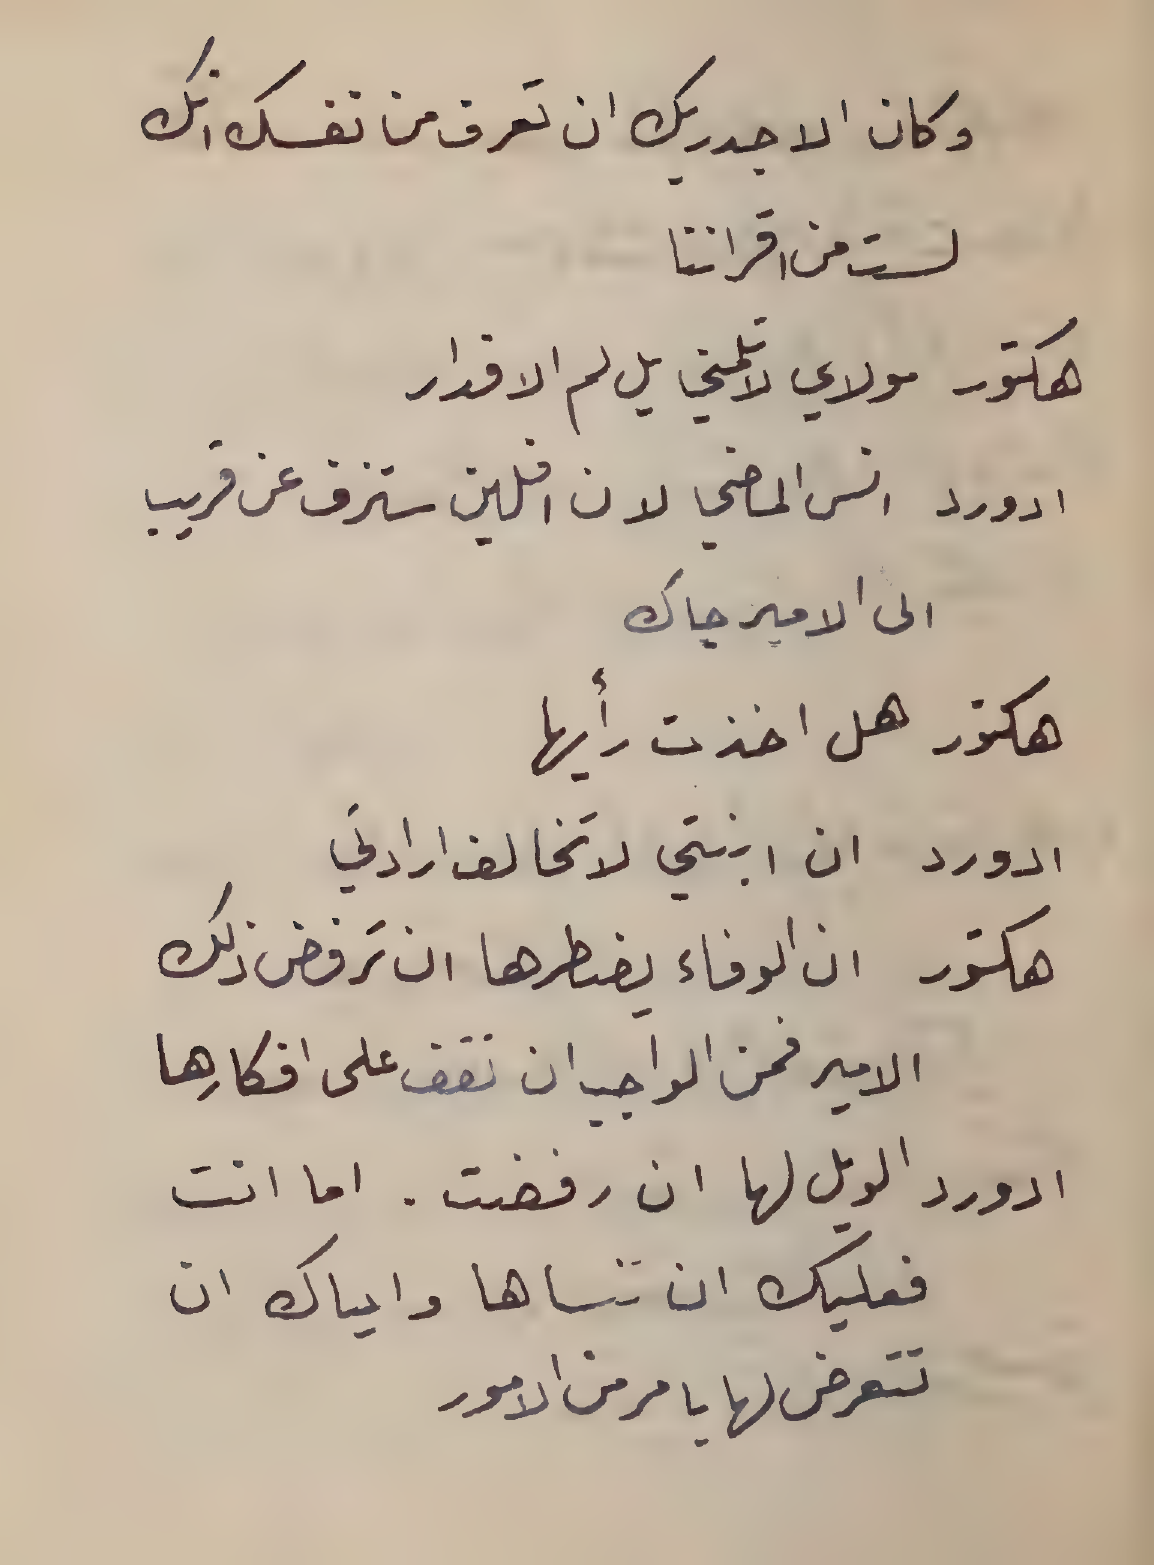 وكان الاجدر بك ان تعرف من نفسك انك
لست من اقراننا
هكتور مولاي لا تلمني بل لم الاقدار
ادورد انس الماضي لان افلين ستزف عن قريب
الى الامير جاك
هكتور هل اخذت رأيها
ادورد ان ابنتي لا تخالف ارادتي
هكتور ان الوفاء يضطرها ان ترفض ذلك
الامير فمن الواجب ان تقف على افكارها
ادورد الويل لها ان رفضت . اما انت
فعليك ان تنساها واياك ان
تتعرض لها بامر من الامور